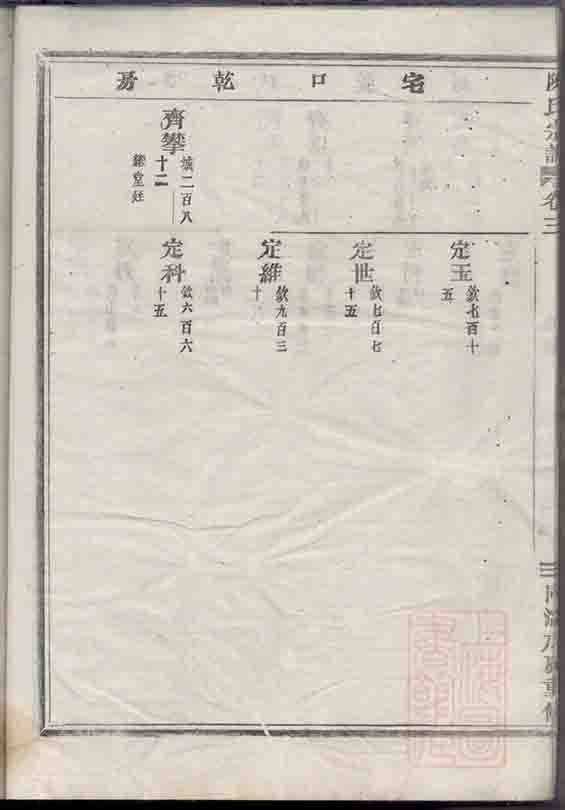 宅口乾房
陳氏宗譜 卷三
齊攀 城二百八十二
定玉 欽七百十五
定世 欽七百七十五
定維 欽九百三十
定科 欽六百六十五
上海圖書館藏